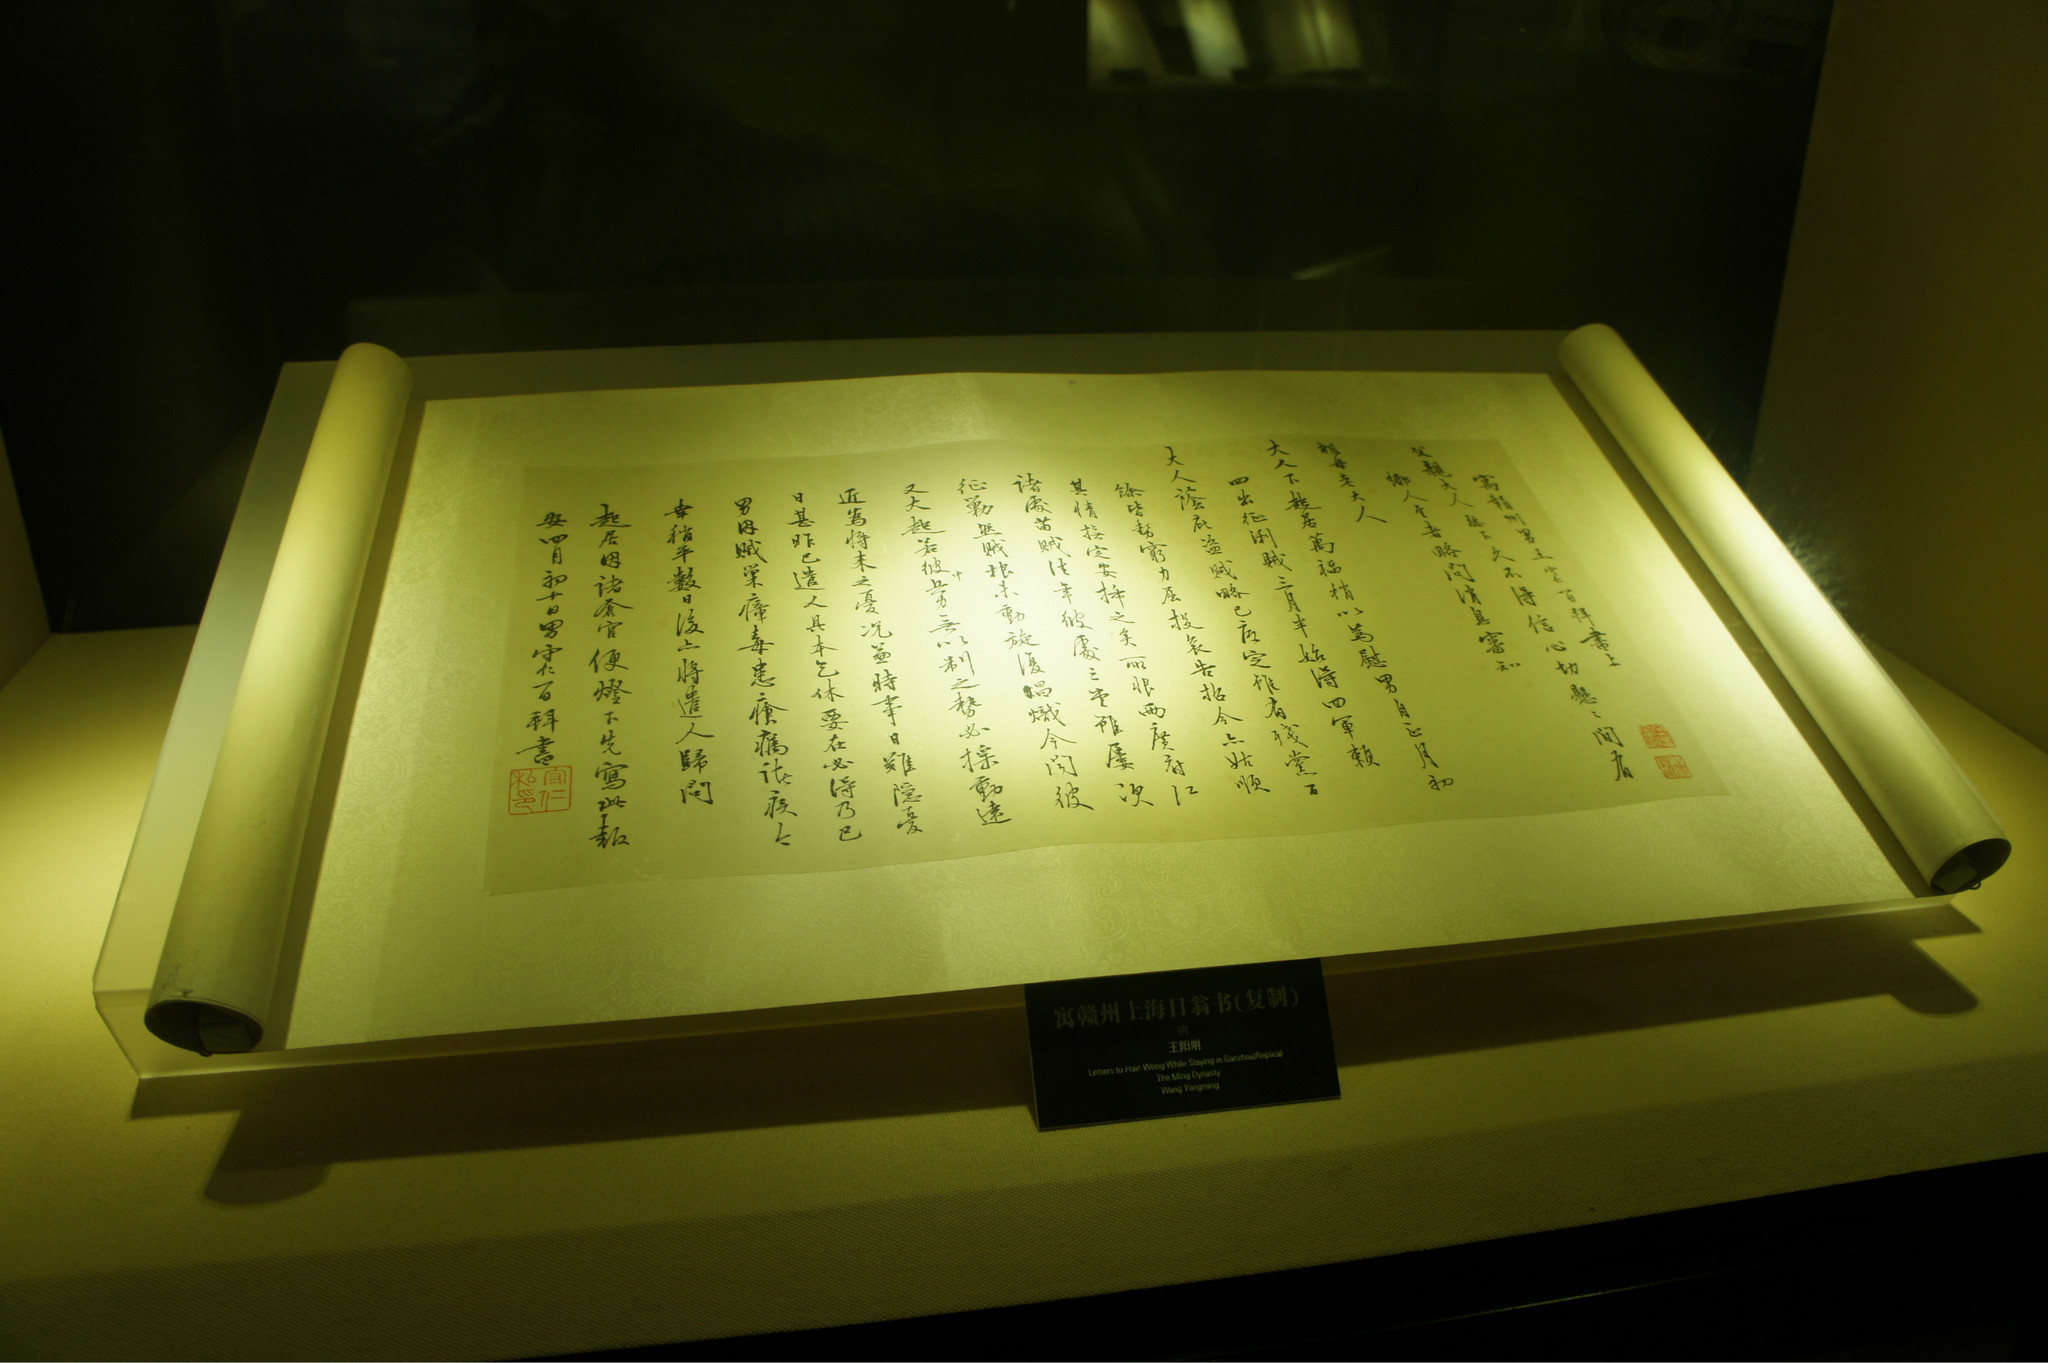 寓贛州男王守仁百拜書上
父親大人膝下久不得信心切懸々間有
鄉人至者略問消息審知
祖母老大人
大人下起居萬福稍以為慰男自正月初
四出征浰賊三月半始得回軍賴
大人蔭庇盜賊略已底定雖有殘黨百
餘皆勢窮力屈投哀告招今亦姑順
其情撫定安插之矣所恨兩廣府江
諸處苗賊往年彼處三堂雖屢次
征勦然賊根未動旋復倡熾今聞彼
又大起若彼中兵勇無以制之勢必搖動遠
近為將來之憂況兼時事日難隱憂
日甚昨已遣人具本乞休要在必得乃已
男因賊巢瘴毒患瘡癘諸疾今
幸稍平數日後亦將遣人歸問
起居因諸倉官便燈下先寫此報
安四月初十日男守仁百拜書
守仁私印
寓赣州上海日翁书(复制)
明
王阳明
Letters to Hairi Weng While Staying in Ganzhou(Replica)
The Ming Dynasty
Wang Yangming